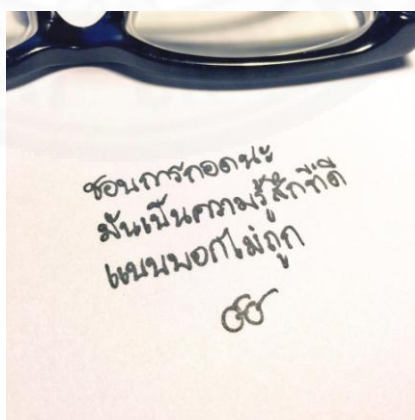 ชอบการกอดนะ
มันเป็นความรู้สึกที่ดี
แบบบอกไม่ถูก